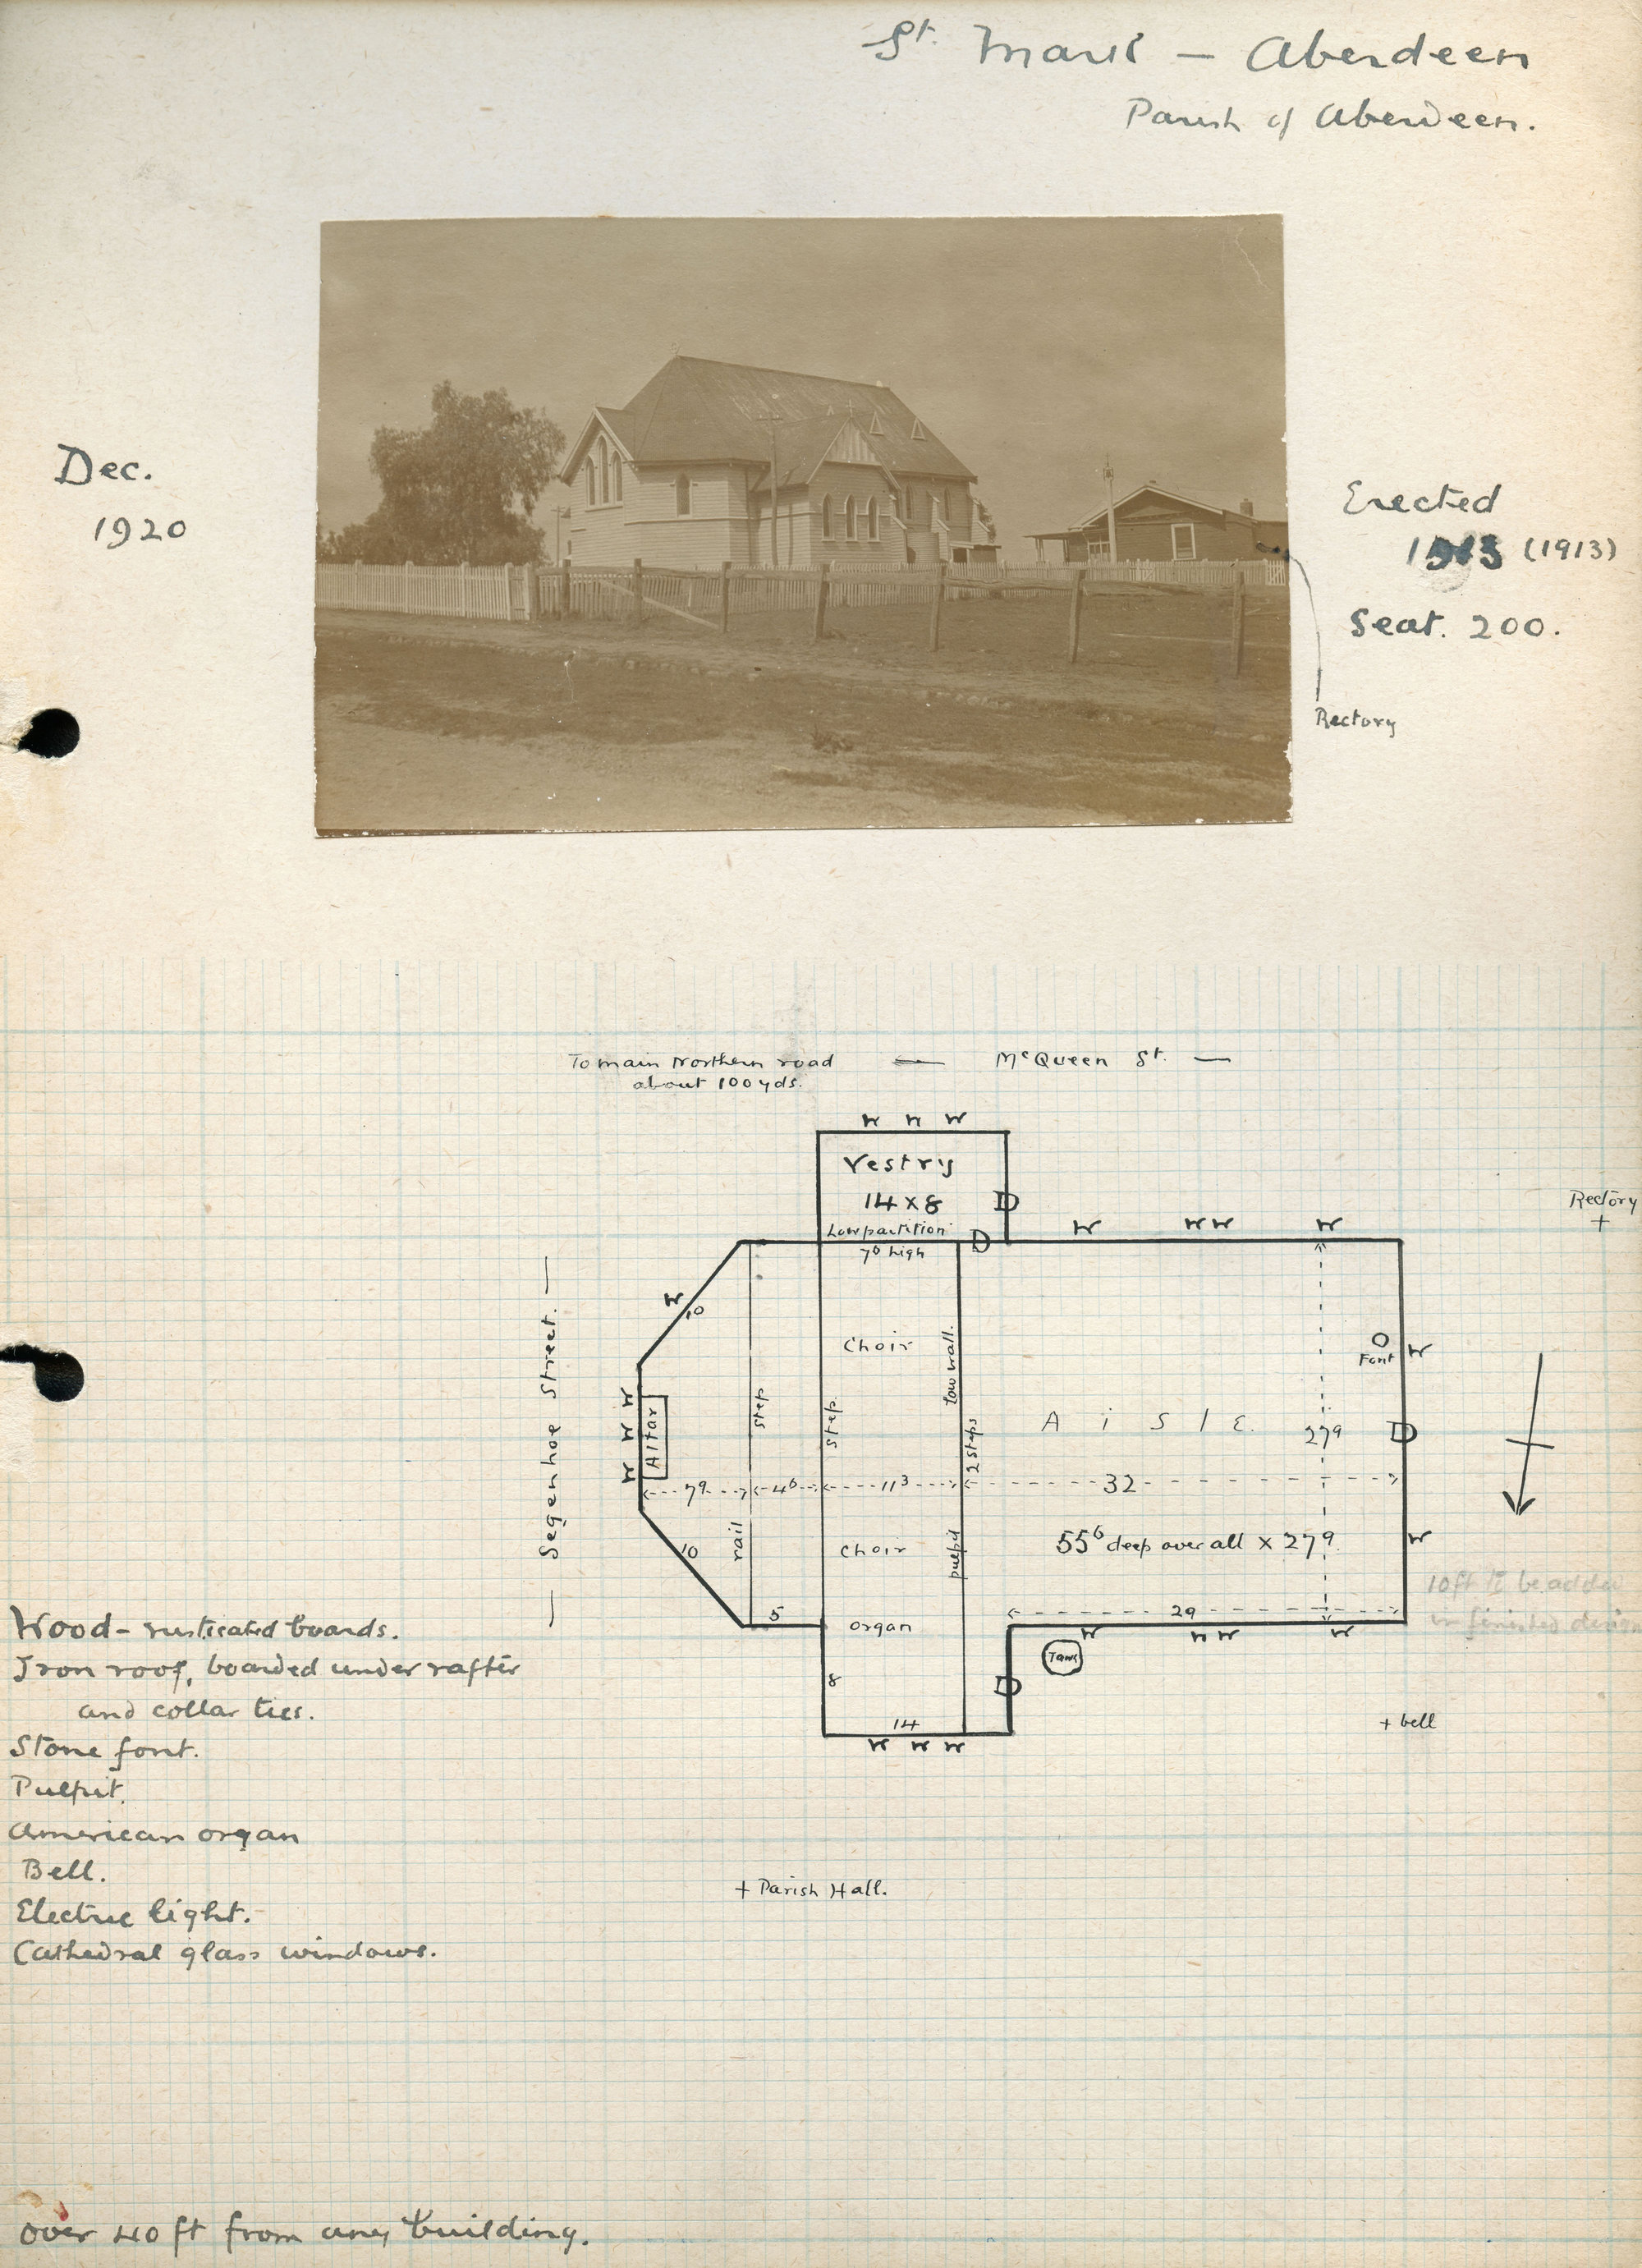 St. Mark — Aberdeen
Parish of Aberdeen.
Dec.
1920
Erected
1913 (1913)
Seat. 200.
Rectory
To main Northern road — McQueen St. —
about 100 yds.
W W W
Vestry
14 x 8
D
Low partition
7⁶ high
D
W W W W
Rectory
+
— Segenhoe Street. —
W
10
W W W
Altar
step
step
Choir
low wall.
2 steps
Aisle.
27⁹
Font
W
D
7⁹ 4⁶ 11³ 32
rail
10
Choir
pulpit
55⁶ deep over all x 27⁹
W
10ft to be added
in finished design
5
organ
29
W W W W
Tank
8
D
14
W W W
+ bell
+ Parish Hall.
Wood - rusticated boards.
Iron roof, boarded under rafter
and collar ties.
Stone font.
Pulpit.
American organ
Bell.
Electric light.
Cathedral glass windows.
over 40 ft from any building.